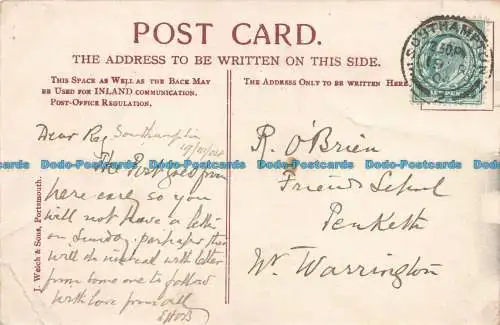 POST CARD.
THE ADDRESS TO BE WRITTEN ON THIS SIDE.
THIS SPACE AS WELL AS THE BACK MAY
BE USED FOR INLAND COMMUNICATION.
POST-OFFICE REGULATION.
THE ADDRESS ONLY TO BE WRITTEN HERE.
SOUTHAMPTON
Southampton
19/11/04
Dear Reg
The Post goes from
here early so you
will not have a letter
on Sunday. perhaps this
will do instead with letter
from some one to follow
With love from all
EHOB
R. O'Brien
Friends School
Penketh
Nr. Warrington
J. Welch & Sons, Portsmouth.
Dodo-Postcards Dodo-Postcards Dodo-Postcards Dodo-Postcards Dodo-Postcards